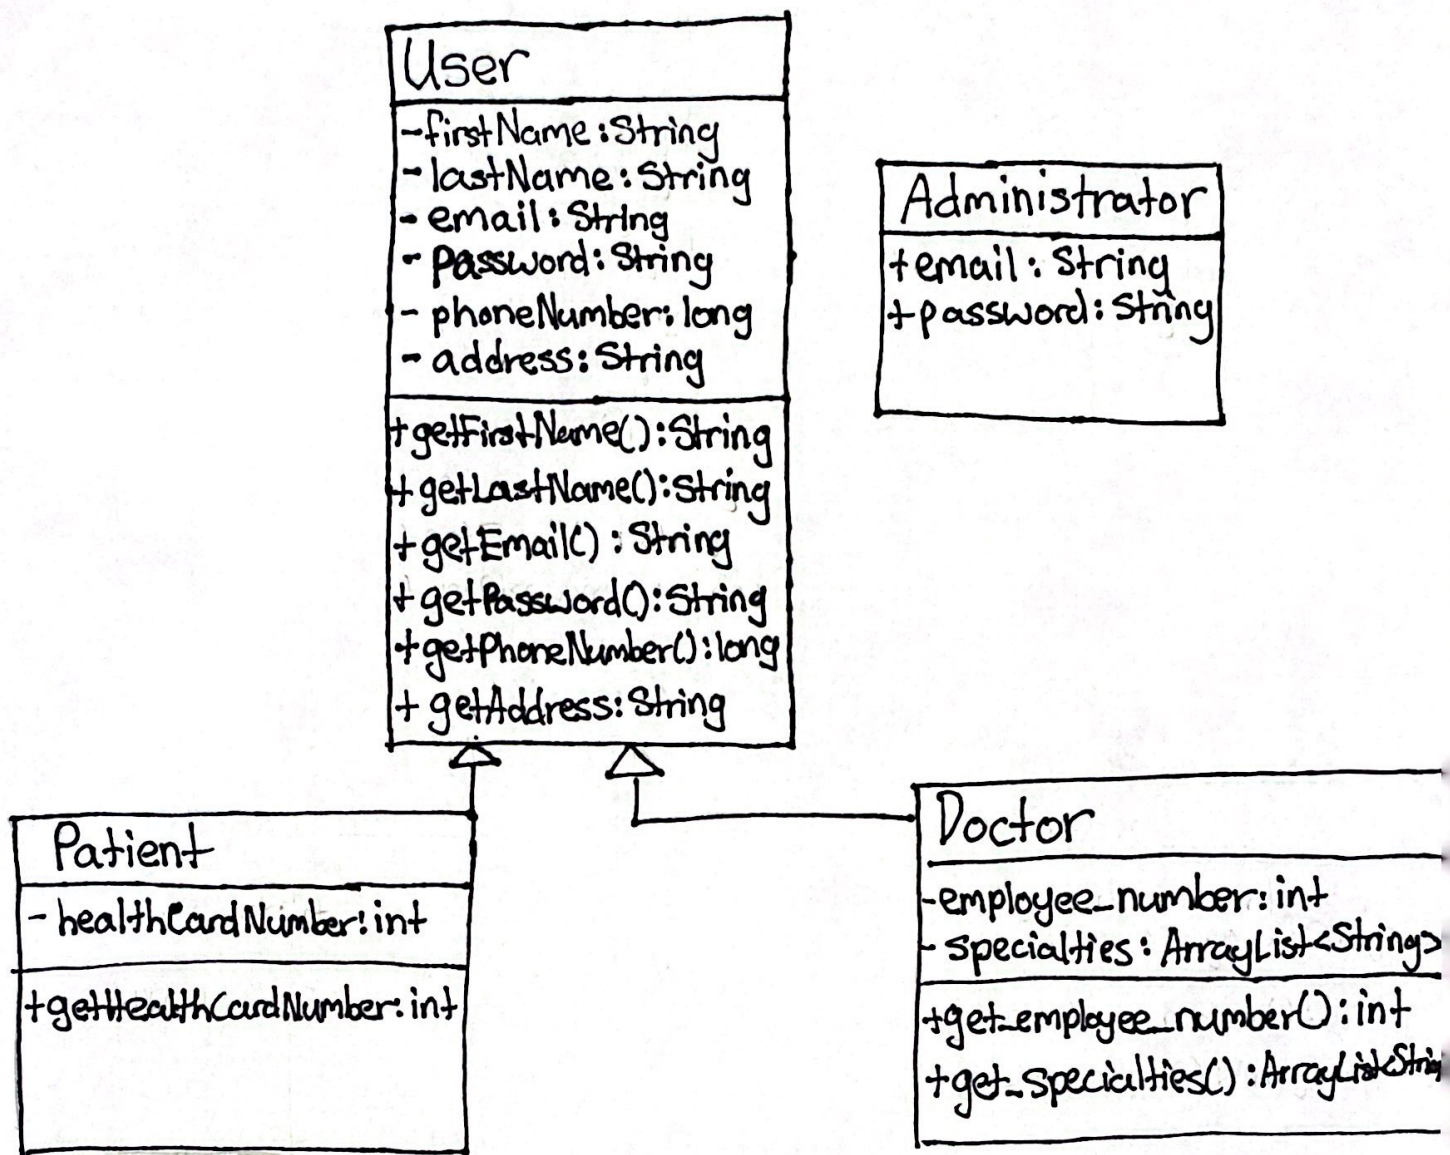 User
-firstName:String
-lastName:String
-email:String
-password:String
-phoneNumber:long
-address:String
+getFirstName():String
+getLastName():String
+getEmail():String
+getPassword():String
+getPhoneNumber():long
+getAddress:String
Administrator
+email:String
+password:String
Patient
-healthCardNumber:int
+getHealthCardNumber:int
Doctor
-employee_number:int
-specialties:ArrayList<String>
+get_employee_number():int
+get_specialties():ArrayList<Strin